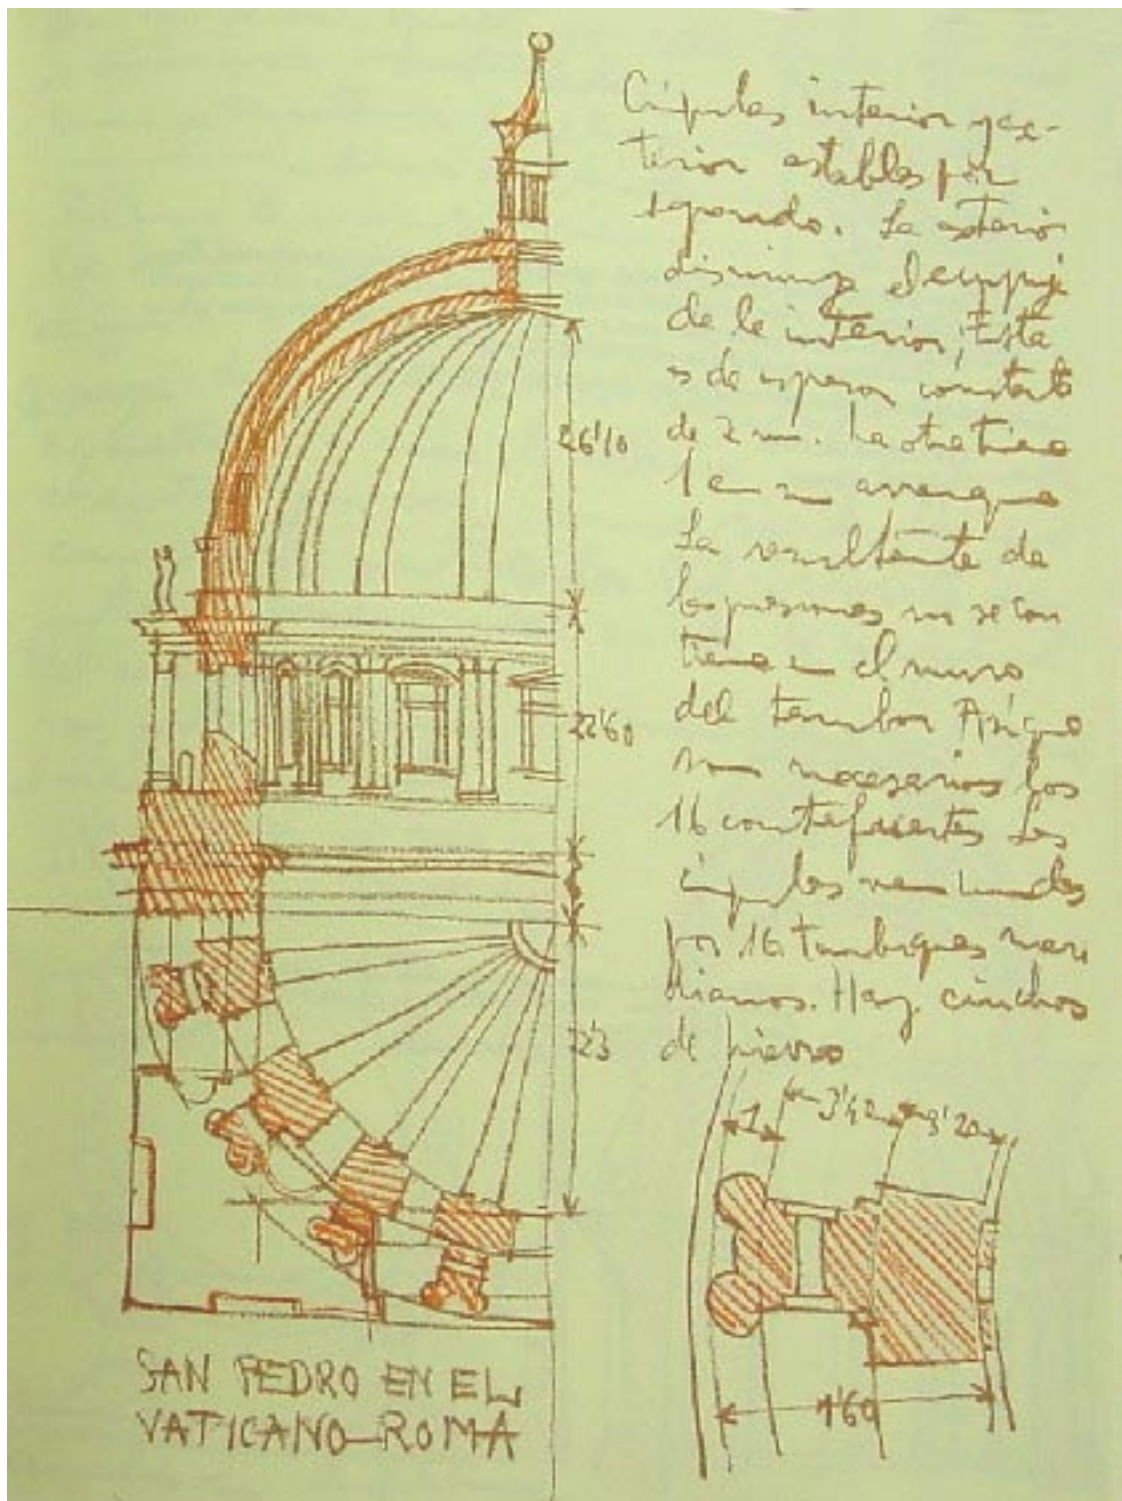 Cúpulas interior y ex-
terior estables por
separado. La exterior
disminuye el empuje
de la interior; Esta
es de espesor constante
de 2 m. La otra tiene
1 en arranque
La resultante de
las presiones no se con
tiene en el muro
del tambor Así que
son necesarios los
16 contrafuertes Las
cúpulas van unidas
por 16 tambiques meri
dianos. Hay cinchos
de hierro
26'10
22'60
1
3'42
3'20
4'60
SAN PEDRO EN EL
VATICANO-ROMA